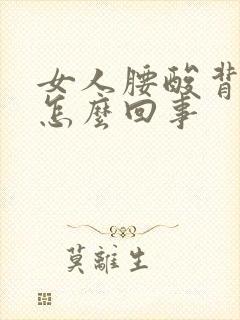 女人腰酸背
怎麼回事
莫離生